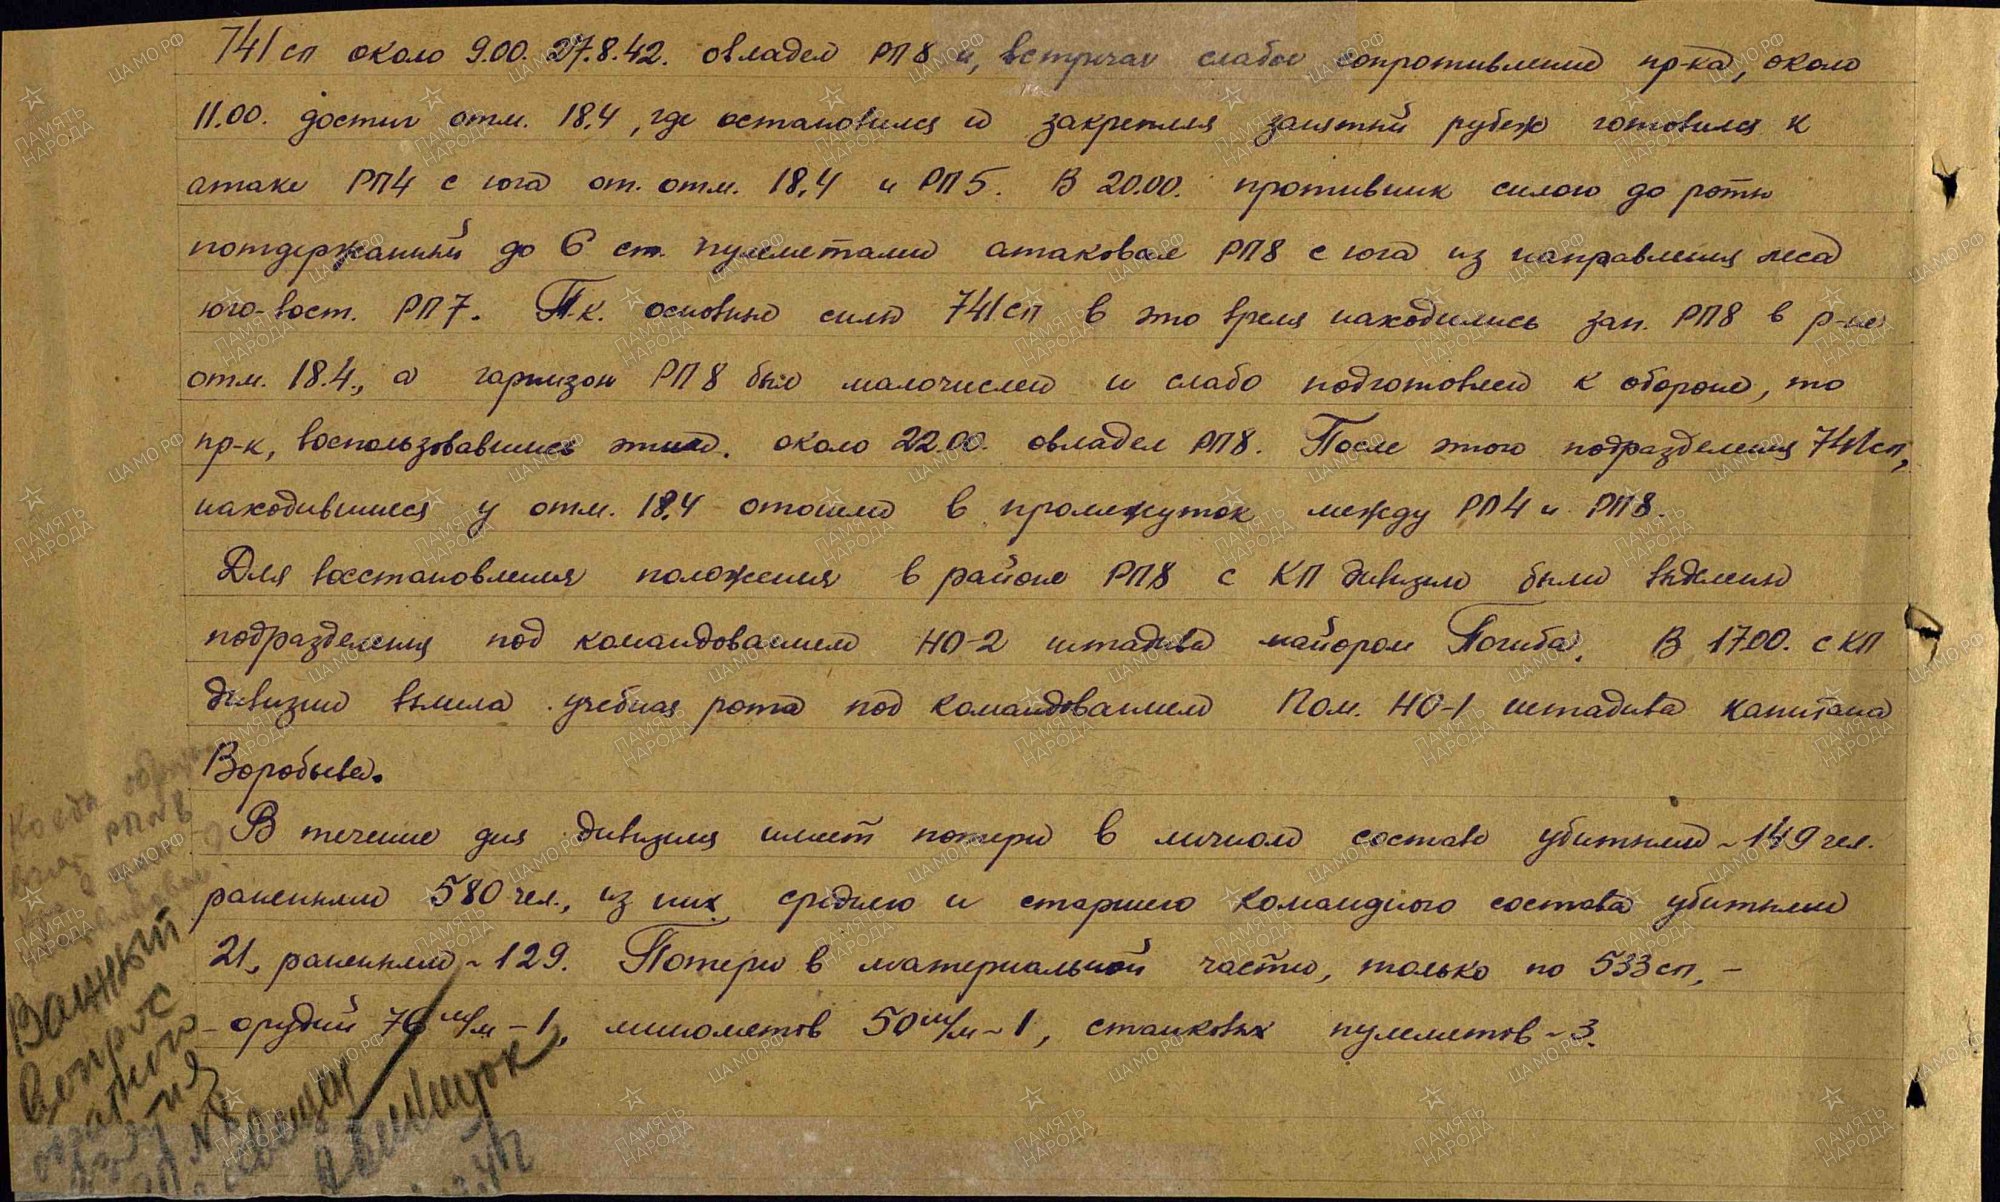 741 сп около 9.00. 27.8.42. овладел РП8 и, встречая слабое сопротивление пр-ка, около
11.00. достиг отм. 18,4, где остановился и закрепляя занятый рубеж готовился к
атаке РП4 с юга от. отм. 18,4 и РП5. В 20.00. противник силою до роты
потдержанный до 6 ст. пулеметами атаковал РП8 с юга из направления леса
юго-вост. РП7. Т.к. основные силы 741 сп в это время находились зап. РП8 в р-не
отм. 18.4., а гарнизон РП8 был малочислен и слабо подготовлен к обороне, то
пр-к, воспользовавшись этим, около 22.00. овладел РП8. После этого подразделения 741 сп,
находившиеся у отм. 18,4 отошли в промежуток между РП4 и РП8.
Для восстановления положения в районе РП8 с КП дивизии были выделены
подразделения под командованием НО-2 штадива майором Погиба. В 17.00. с КП
дивизии вышла учебная рота под командованием Пом. НО-1 штадива капитана
Воробьева.
В течение дня дивизия имеет потери в личном составе убитыми - 149 чел.
ранеными 580 чел., из них среднего и старшего командного состава убитыми
21, ранеными - 129. Потери в материальной части, только по 533 сп, -
- орудий 76 м/м - 1, минометов 50 м/м - 1, станковых пулеметов - 3.
Когда
РП №8
Важный
вопрос
обратного
взятия
РП №8